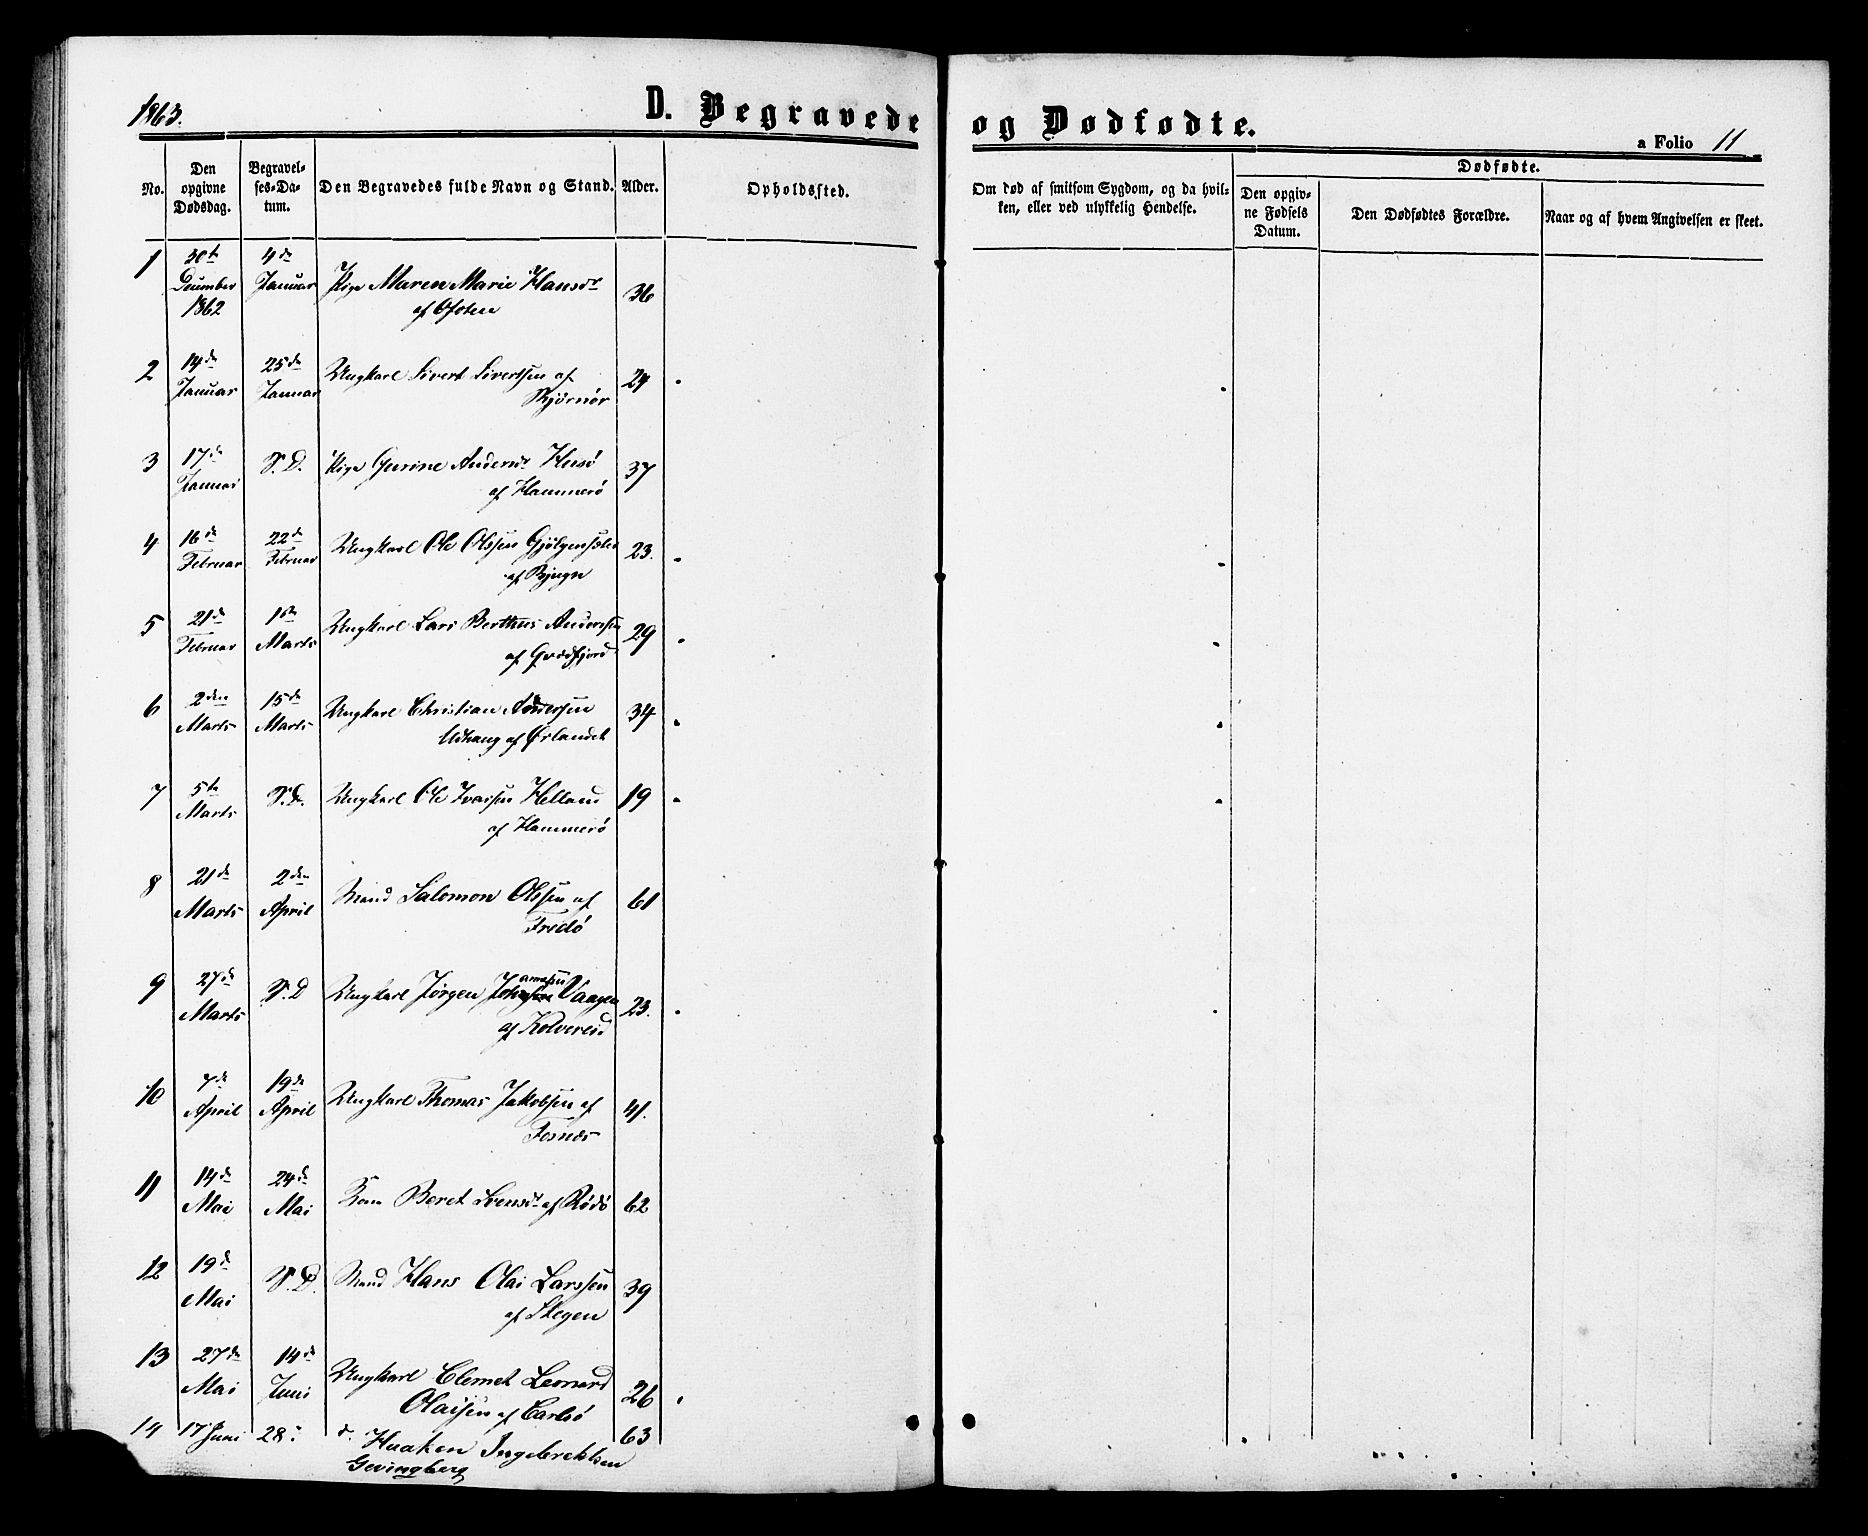 1863.
D. Begravede og Dødfødte.
a Folio 11
No.
Den opgivne Dødsdag.
Begravelses-Datum.
Den Begravedes fulde Navn og Stand.
Alder.
Opholdssted.
Om død af smitsom Sygdom, og da hvilken, eller ved ulykkelig Hendelse.
Dødfødte.
Den opgivne Fødsels Datum.
Den Dødfødtes Forældre.
Naar og af hvem Angivelsen er skeet.
1 30te December 1862 4de Januar Pige Maren Marie Hansdr 36
af Ofoten
2 14de Januar 25de Januar Ungkarl Sivert Sivertsen af 24
Bjørnør
3 17de Januar S. D. Pige Gurine Andersdr Husö 37
af Hammerö
4 16de Februar 22de Februar Ungkarl Ole Olssen 23.
af Bjugn
5 21de Februar 1ste Marts Ungkarl Lars Berthus Anderssen 29
af
6 2den Marts 15de Marts Ungkarl Christian Andersen 34
Udhaug af Ørlandet
7 5te Marts S. D. Ungkarl Ole Ivarsen Helland 19
af Hammerö
8 21de Marts 2den April Mand Salomon Olssen af 61
9 27de Marts S. D Ungkarl Jørgen Vaagen 23.
af Kolvereid
10 7de April 19de April Ungkarl Thomas Jakobsen af 41.
Fosnæs
11 14de Mai 24de Mai Kone Beret Svensdr af Rödö 62
12 19de Mai S. D. Mand Hans Olai Larssen 39
af Stegen
13 27de Mai 14de Juni Ungkarl Clemet Leonard 26
Olaisen af Carlsö
14 17 Juni 28 d. Haaken Ingebrektsen 63
Gevingberg